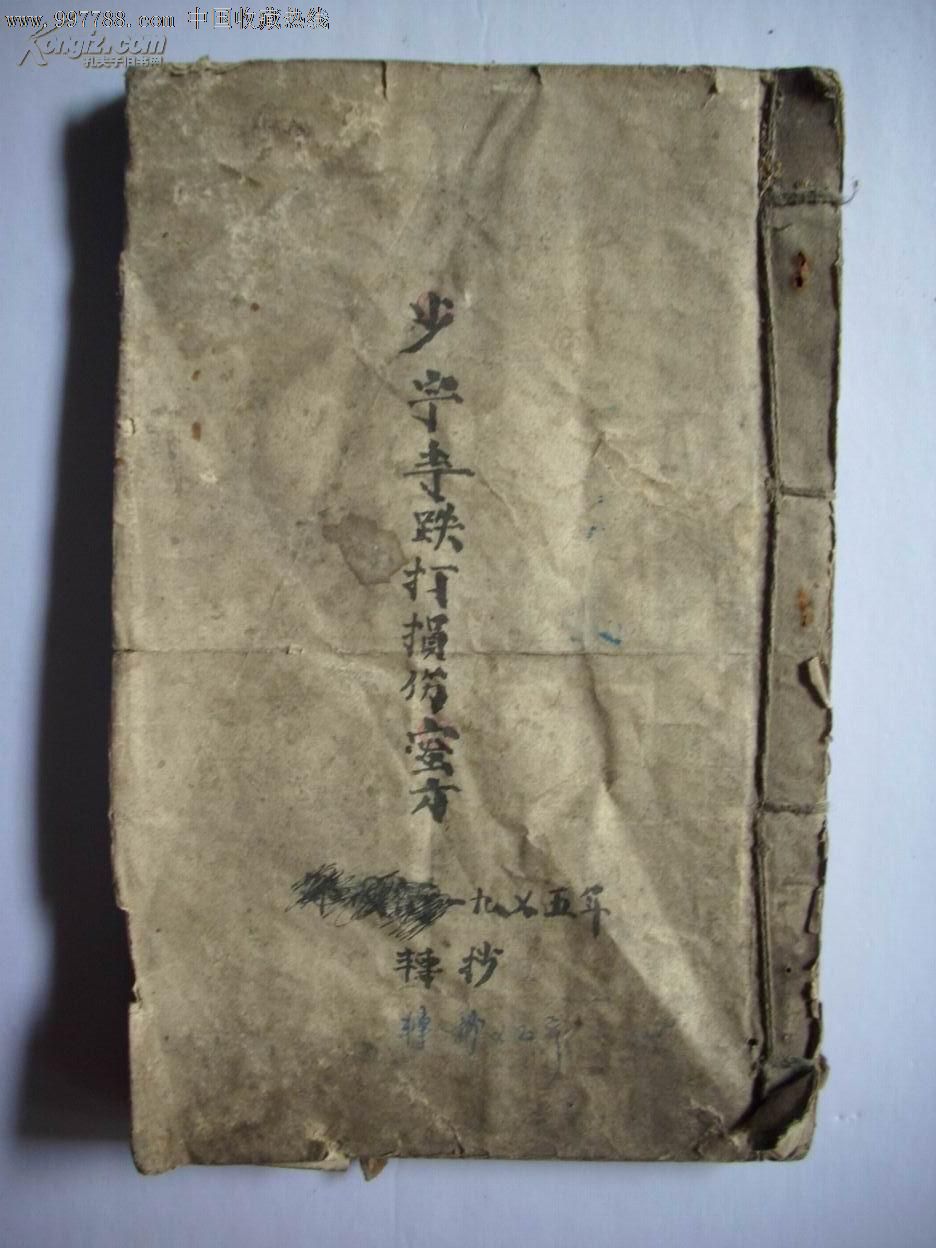 www.997788.com 中国收藏热线
Kongfz.com
孔夫子旧书网
少字李跌打損伤蜜方
一九七五年
轉抄
轉抄